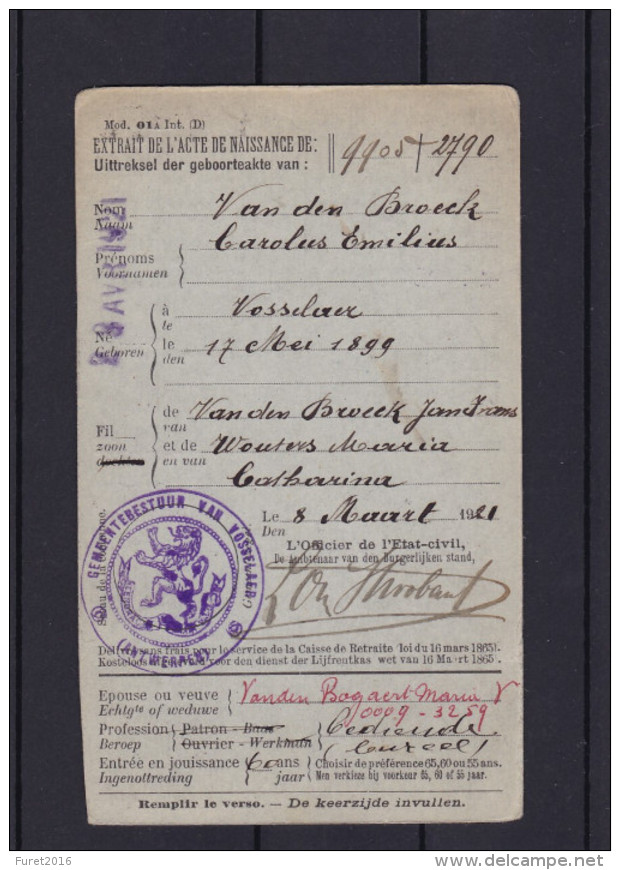 Mod. 01A Int. (D)
EXTRAIT DE L'ACTE DE NAISSANCE DE:
Uittreksel der geboorteakte van:
9905 + 2790
Nom Van den Broeck
Naam
Carolus Emilius
Prénoms
Voornamen
AVR 1921
à Vosselaer
te
Né le 17 Mei 1899
Geboren den
Fil de Van den Broeck Jan Frans
zoon van
et de Wouters Maria
dochter en van
Catharina
Le 8 Maart 1921
Den
GEMEENTEBESTUUR VAN VOSSELAER
(ANTWERPEN)
L'Officier de l'Etat-civil,
De Ambtenaar van den Burgerlijken stand,
Délivré sans frais pour le service de la Caisse de Retraite (loi du 16 mars 1865).
Kosteloos voor den dienst der Lijfrentkas wet van 16 Maart 1865
Epouse ou veuve Vanden Bogaert Maria V
Echtgte of weduwe 0009 - 3259
Profession Patron - Baas Bediende
Beroep Ouvrier - Werkman
Entrée en jouissance 60 ans Choisir de préférence 65, 60 ou 55 ans.
Ingenottreding jaar Men verkieze bij voorkeur 65, 60 of 55 jaar.
Remplir le verso. — De keerzijde invullen.
Furet2016
delcampe.net